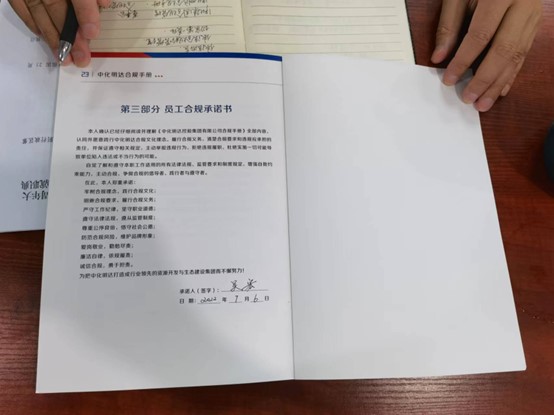 23 | 中化明达合规手册
第三部分 员工合规承诺书
本人确认已经仔细阅读并理解《中化明达控股集团有限公司合规手册》全部内容，
认同并愿意践行中化明达合规文化理念，履行合规义务，清楚合规要求和违规后承担的
责任，并保证遵守相关规定，主动举报违规行为，拒绝违规履职，杜绝实施一切可能导
致单位陷入违法或不当行为的可能。
自觉了解和遵守本职工作适用的所有法律法规、监管要求和制度规定，增强自我约
束能力，主动合规，争做合规的倡导者、践行者与遵守者。
在此，本人郑重承诺：
牢树合规理念，践行合规文化；
明晰合规要求，履行合规义务；
严守工作纪律，坚守职业道德；
遵守法律法规，遵从监管制度；
尊重公序良俗，恪守社会公德；
防范合规风险，维护品牌形象；
爱岗敬业，勤勉尽责；
廉洁自律，依规履责；
诚信合规，勇于担当。
为把中化明达打造成行业领先的资源开发与生态建设集团而不懈努力！
承诺人（签字）：
日 期：2022 年 9 月 6 日